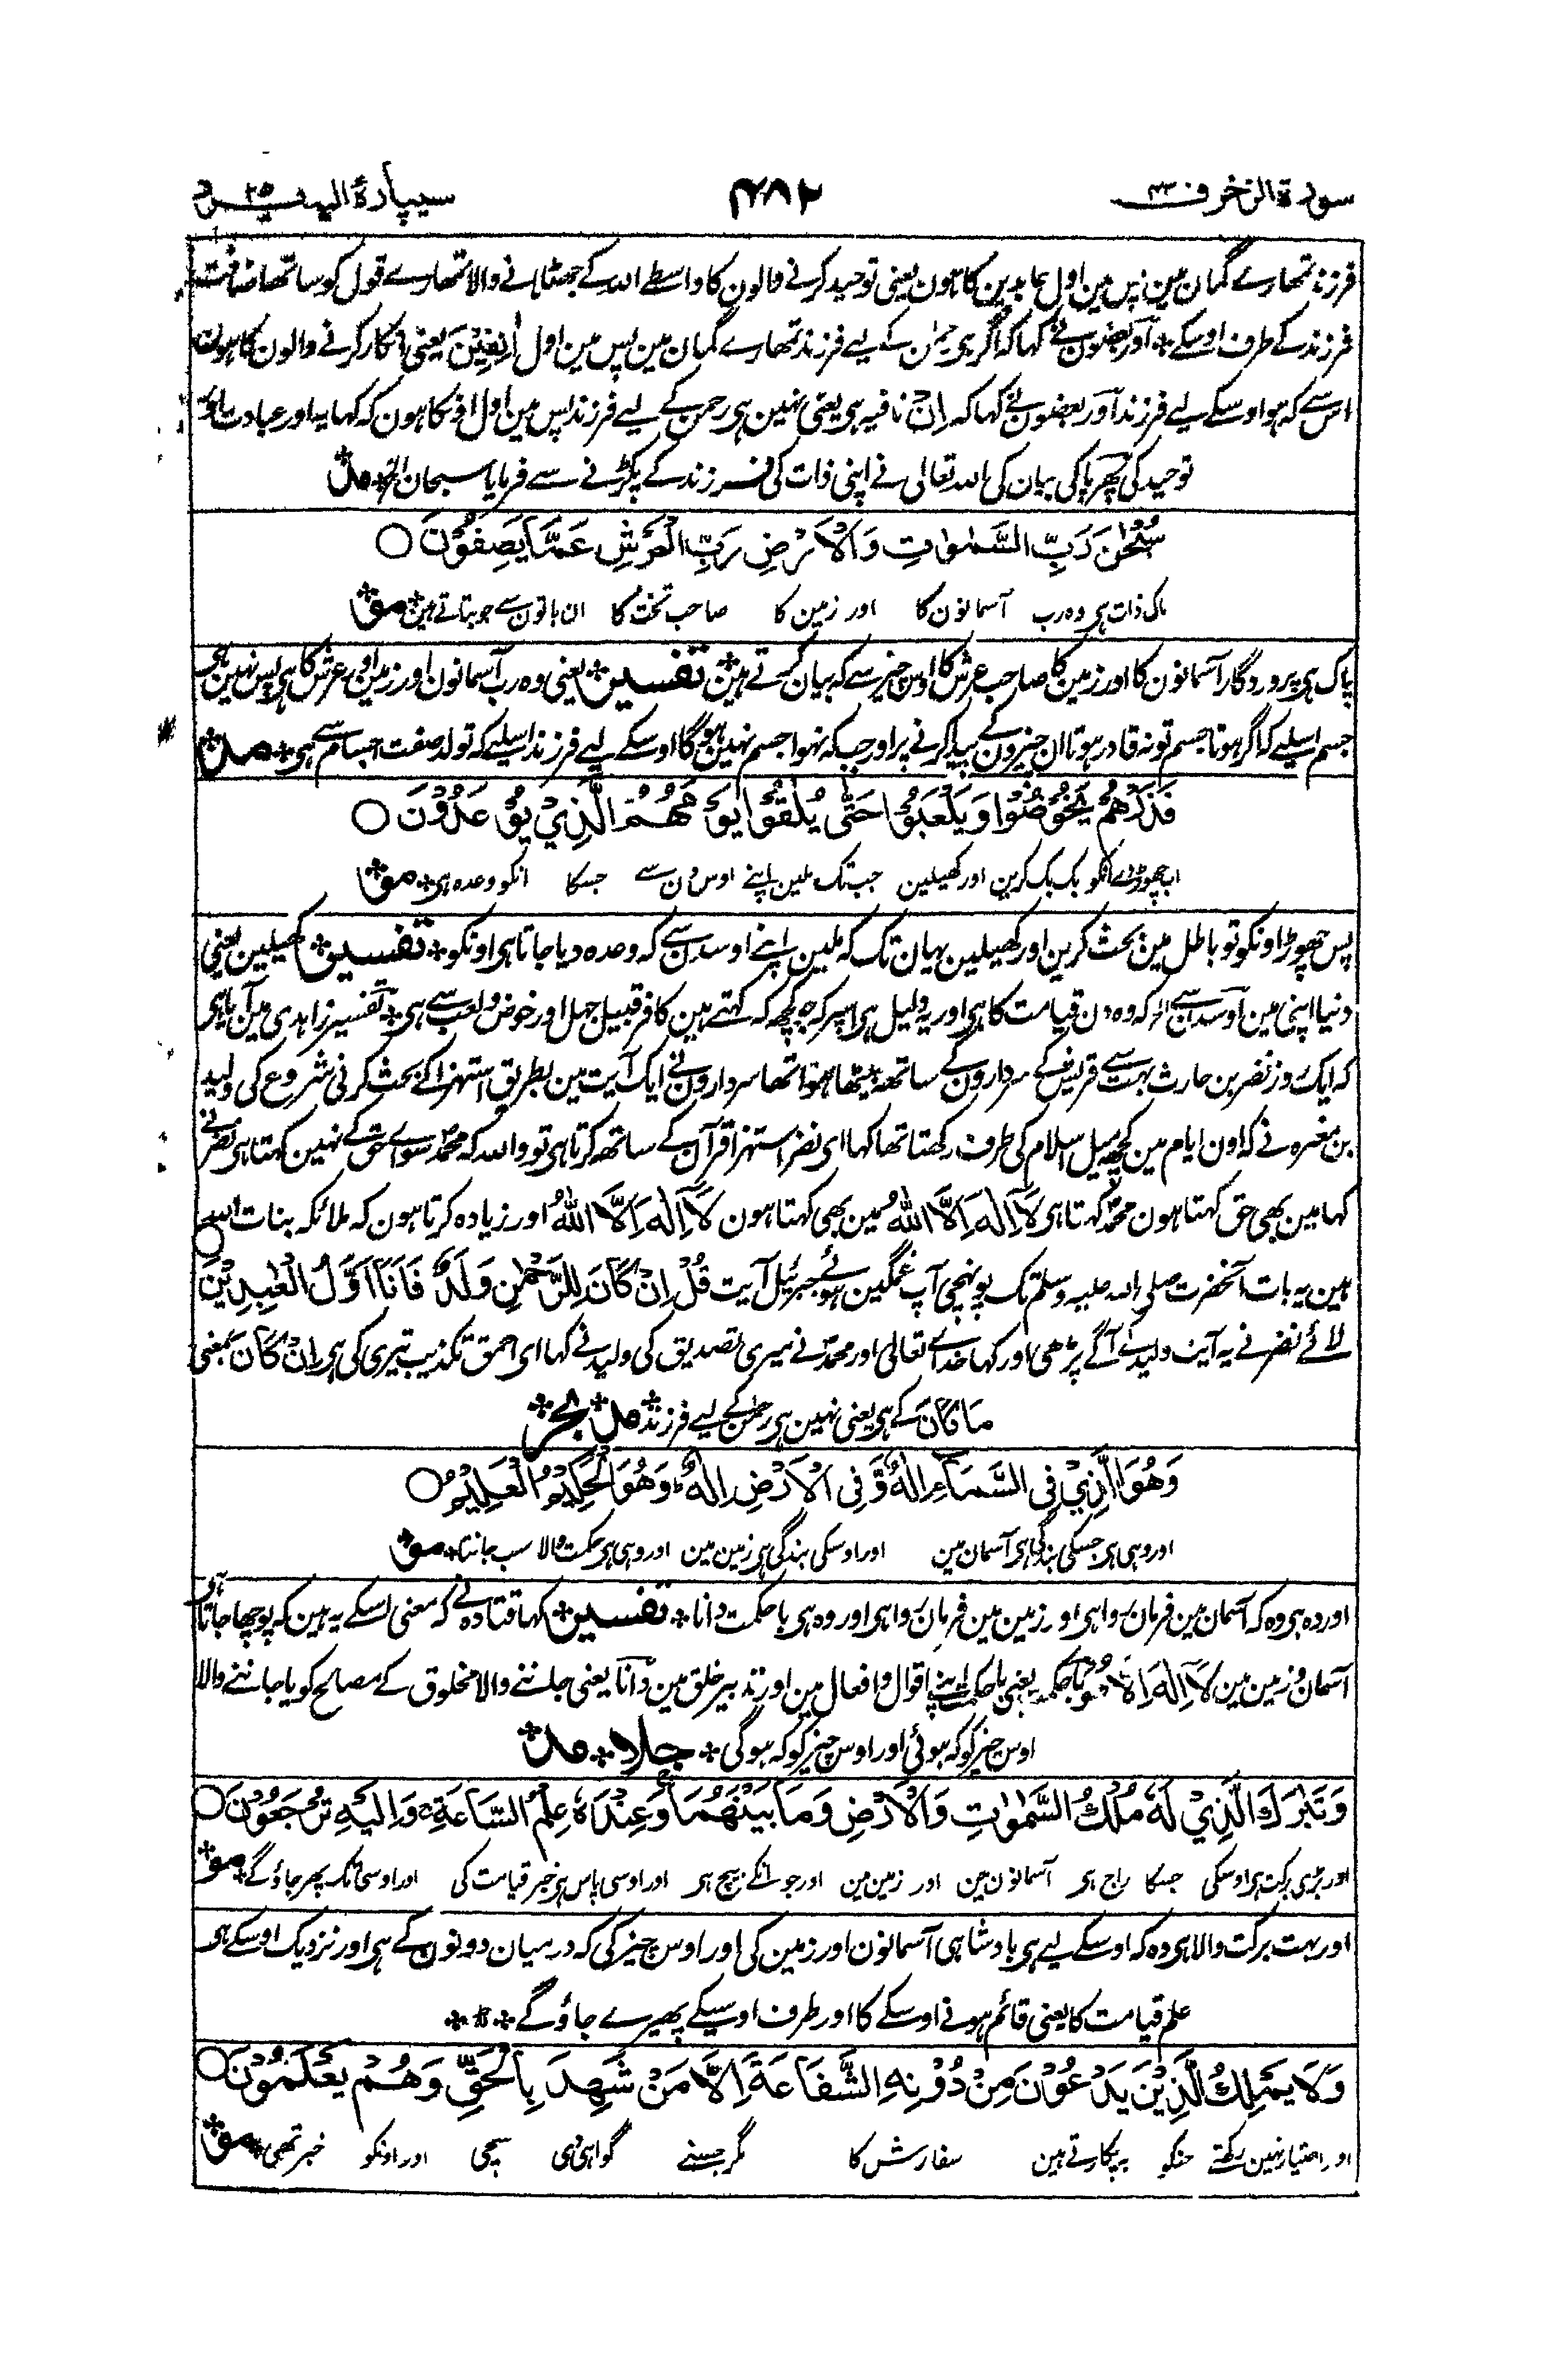 سورة الزخرف ۴۳
۴۸۲
سیپارۂ الیہ یرد ۲۵
فرزند تمھارے گمان مین پس مین اول عابدین کا ہون یعنی توحید کرنے والون کا واسطے اللہ کے جھٹلانے والا تمھارے قول کو ساتھ اضافت
فرزند کے طرف اوسکے * اور بعضون نے کہا کہ اگر ہی رحمٰن کے لیے فرزند تمھارے گمان مین پس مین اول اٰنِفِیْنَ یعنی انکار کرنے والون کا ہون
اس سے کہ ہو اوسکے لیے فرزند اور بعضون نے کہا کہ اِنْ نافیہ ہی یعنی نہین ہی رحمن کے لیے فرزند پس مین اول اوکا ہون کہ کہا یہ اور عبادت
توحید کی پھر پاکی بیان کی اللہ تعالی نے اپنی ذات کی فرزند کے پکڑنے سے فرمایا سبحان الخ * مدٰ
سُبْحٰنَ رَبِّ السَّمٰوٰتِ وَالْاَرْضِ رَبِّ الْعَرْشِ عَمَّا یَصِفُوْنَ ○
پاک ذات ہی وہ رب آسمانون کا اور زمین کا صاحب تخت کا ان باتون سے جو بتاتے ہین * مو
پاک ہی پروردگار آسمانون کا اور زمین کا صاحب عرش کا اوس چیز سے کہ بیان کرتے ہین * تفسیر * یعنی وہ رب آسمانون اور زمین اور عرش کا ہی پس نہین ہی
جسم اسلیے کہ اگر ہوتا جسم تو نہ قادر ہوتا ان چیزون کے پیدا کرنے پر اور جب کہ نہوا جسم نہین ہوگا اوسکے لیے فرزند اسلیے کہ تولد صفت اجسام سے ہی * مد
فَذَرْهُمْ یَخُوْضُوْا وَ یَلْعَبُوْا حَتّٰی یُلٰقُوْا یَوْمَهُمُ الَّذِیْ یُوْعَدُوْنَ ○
اب چھوڑ دے انکو بک بک کرین اور کھیلین جب تک ملین اپنے اوس دن سے جسکا انکو وعدہ ہی * مو
پس چھوڑ اونکو تو باطل مین بحث کرین اور کھیلین یہان تک کہ ملین اپنے اوسدن سے کہ وعدہ دیا جاتا ہی اونکو * تفسیر * کھیلین یعنی
دنیا اپنی مین اوسدن سے الخ کہ وہ دن قیامت کا ہی اور یہ دلیل ہی اسپر کہ جو کچھ کہ کہتے ہین کافر قبیل جہل اور خوض و لعب سے ہی * تفسیر زاہدی مین آیا ہی
کہ ایک روز نضر بن حارث بہت سے قریش کے سردارون کے ساتھ بیٹھا ہوا تھا سردارون نے ایک آیت مین بطریق استہزا کے بحث کرنی شروع کی ولید
بن مغیرہ نے کہ اون ایام مین کچھ میل اسلام کی طرف رکھتا تھا کہا ای نضر استہزا قرآن کے ساتھ کرتا ہی تو واللہ کہ محمد سوائے حق کے نہین کہتا ہی نضر نے
کہا مین بھی حق کہتا ہون محمد کہتا ہی لَا اِلٰهَ اِلَّا اللهُ مین بھی کہتا ہون لَا اِلٰهَ اِلَّا اللهُ اور زیادہ کرتا ہون کہ ملائکہ بنات اللہ
ہین یہ بات آنحضرت صلی اللہ علیہ وسلم تک پہونچی آپ غمگین ہوئے جبرئیل آیت قُلْ اِنْ کَانَ لِلرَّحْمٰنِ وَلَدٌ فَاَنَا اَوَّلُ الْعٰبِدِیْنَ ○
لائے نضر نے یہ آیت ولید کے آگے پڑھی اور کہا خدائے تعالی اور محمد نے میری تصدیق کی ولید نے کہا ای احمق تکذیب تیری کی ہی اِنْ کَانَ بمعنی
مَا کَانَ کے ہی یعنی نہین ہی رحمٰن کے لیے فرزند * مد * بحر *
وَهُوَ الَّذِیْ فِی السَّمَآءِ اِلٰهٌ وَّ فِی الْاَرْضِ اِلٰهٌ وَهُوَ الْحَکِیْمُ الْعَلِیْمُ ○
اور وہی ہی جسکی بندگی ہی آسمان مین اور اوسکی بندگی ہی زمین مین اور وہی ہی حکمت والا سب جانتا * مو
اور وہ ہی وہ کہ آسمان مین فرمان روا ہی اور زمین مین فرمان روا ہی اور وہ ہی با حکمت دانا * تفسیر * کہا قتادہ نے کہ معنی اسکے یہ ہین کہ پوجا جاتا ہی
آسمان و زمین مین لَا اِلٰهَ اِلَّا هُوَ با حکمت یعنی با حکمت اپنے اقوال و افعال مین اور تدبیر خلق مین دانا یعنی جاننے والا مخلوق کے مصالح کو یا جاننے والا
اوس چیز کو کہ ہوئی اور اوس چیز کو کہ ہوگی * جلا * مد
وَ تَبٰرَكَ الَّذِیْ لَهٗ مُلْكُ السَّمٰوٰتِ وَالْاَرْضِ وَمَا بَیْنَهُمَا وَعِنْدَهٗ عِلْمُ السَّاعَةِ وَاِلَیْهِ تُرْجَعُوْنَ ○
اور بڑی برکت ہی اوسکی جسکا راج ہی آسمانون مین اور زمین مین اور جو انکے بیچ ہی اور اوسی پاس ہی خبر قیامت کی اور اوسی تک پھر جاؤگے * مو
اور بہت برکت والا ہی وہ کہ اوسکے لیے ہی بادشاہی آسمانون اور زمین کی اور اوس چیز کی کہ درمیان دونون کے ہی اور نزدیک اوسکے ہی
علم قیامت کا یعنی قائم ہونے اوسکے کا اور طرف اوسیکے پھیرے جاؤگے * * *
وَلَا یَمْلِكُ الَّذِیْنَ یَدْعُوْنَ مِنْ دُوْنِهِ الشَّفَاعَةَ اِلَّا مَنْ شَهِدَ بِالْحَقِّ وَهُمْ یَعْلَمُوْنَ ○
اور اختیار نہین رکھتے جنکو پکارتے ہین سفارش کا مگر جسنے گواہی دی سچی اور اونکو خبر تھی * مو